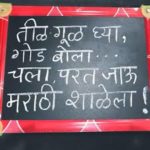 तीळ गूळ घ्या,
गोड बोला...
चला, परत जाऊ
मराठी शाळेला !